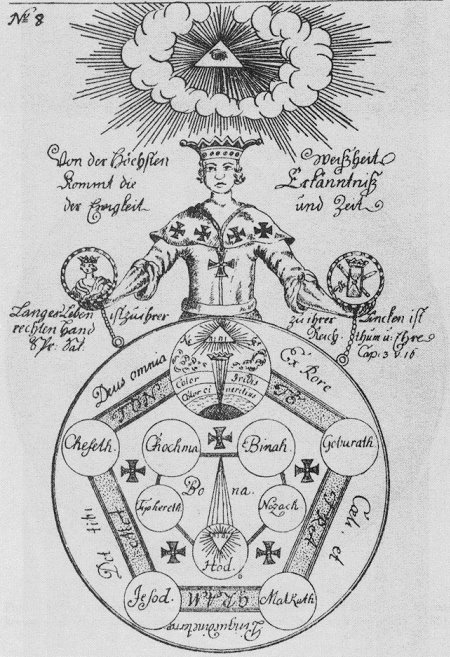 No 8
Von der Höchsten Weißheit
Kommt die Erkäntniß
der Ewigkeit und Zeit
Langes Leben ist zu ihrer
rechten Hand
Spr: Sal.
zu ihrer Lincken ist
Reichthum u: Ehre
Cap: 3 v. 16
Deus omnia
Ex Rore
Cæli et
Pinguedine terræ
Det tibi
Color Iridis
Cheseth.
Chochma
Binah.
Geburath
Bona.
Typhereth
Nezach
Hod.
Jesod.
Malkuth